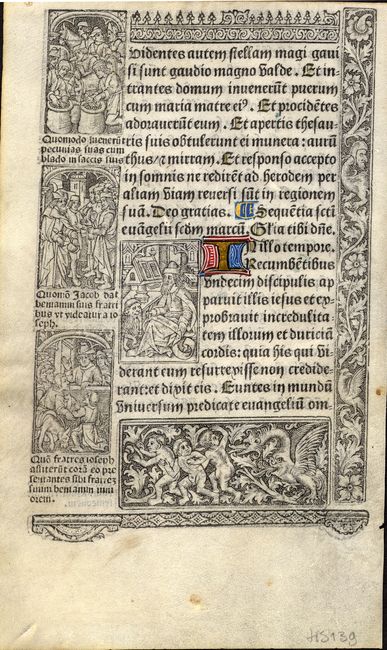 Videntes autem stellam magi gaui
si sunt gaudio magno valde. Et in-
trantes domum invenerūt puerum
cum maria matre ei⁹. Et procidētes
adoraverūt eum. Et apertis thesau
ris suis obtulerunt ei munera: aurū
thus/ ⁊ mirram. Et responso accepto
in somnis ne redirēt ad herodem per
aliam viam reversi sūt in regionem
suā. Deo gratias. Sequētia scti
euāgelii scdm marcū. Glīa tibi dñe.
IN illo tempore.
Recumbētibus
vndecim discipulis ap
paruit illis iesus et ex
probravit incredulita
tem illorum et duriciā
cordis: quia his qui vi
derant eum resurrexisse non credide
rant: et dixit eis. Euntes in mundū
vniversum predicate euangeliū om-
Quomodo invenerūt
pecunias suas cum
blado in saccis suis
Quomō Jacob dat
beniamin suis fratri
bus vt videatur a io
seph.
Quō fratres ioseph
astiterūt corā eo pre
sentantes sibi fratrē
suum beniamin iuni
orem.
HS139